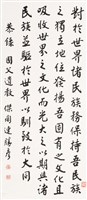 對於世界諸民族務保持吾民族
之獨立地位發揚吾固有之文化且
吸收世界之文化而光大之以期與諸
民族並驅於世界以馴致於大同
恭錄 國父遺教